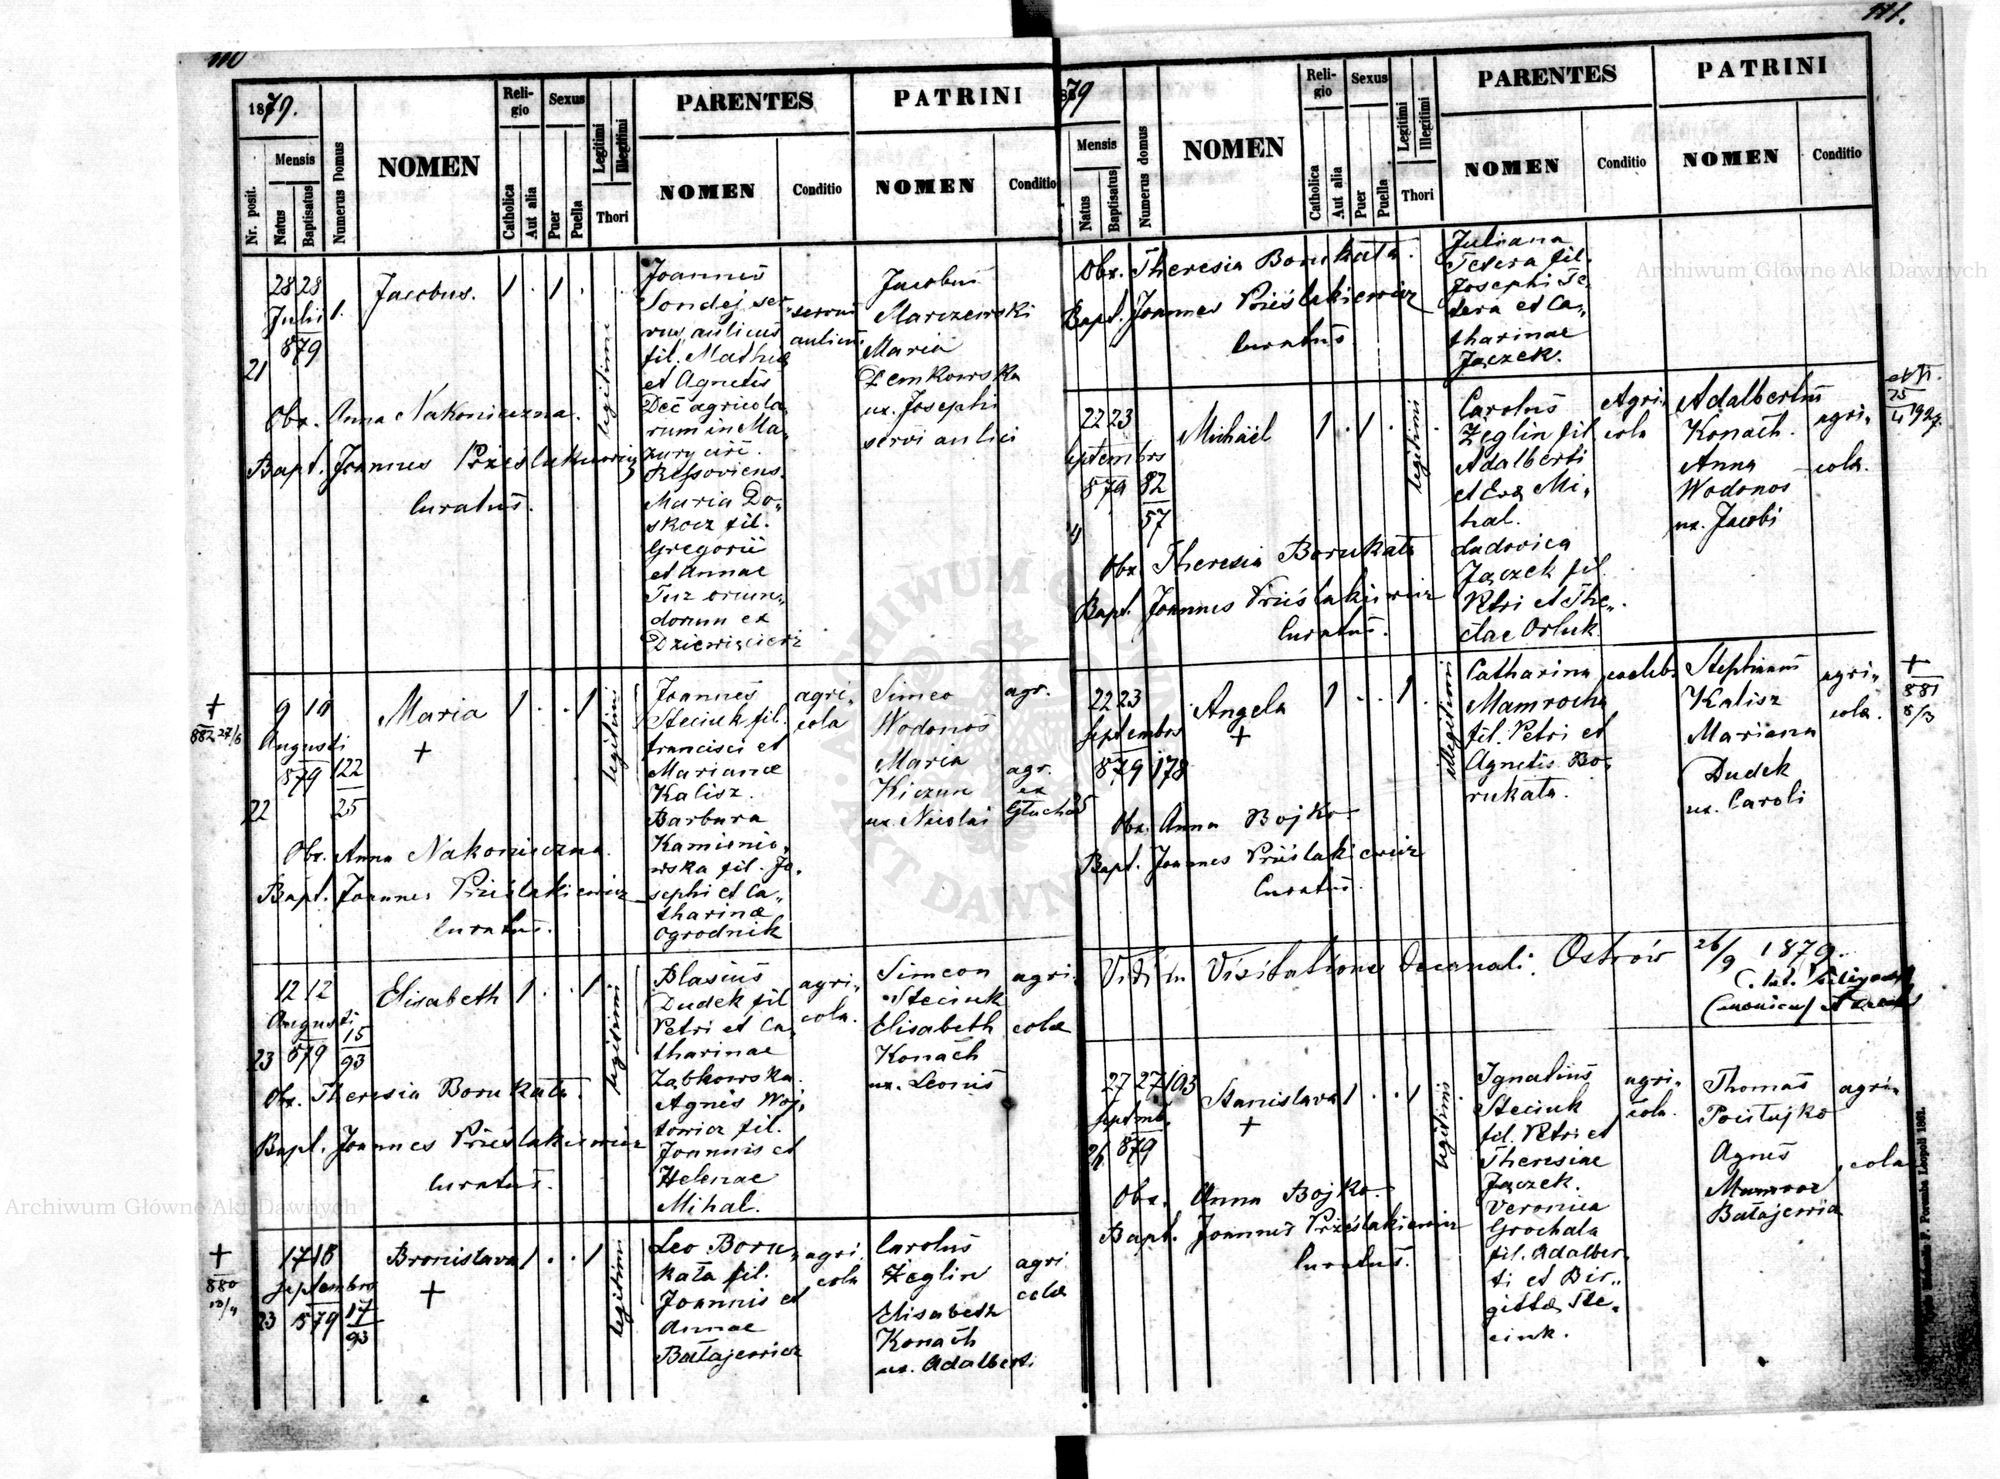 110
1879.
Nr. posit.
Mensis
Natus
Baptisatus
Numerus Domus
NOMEN
Religio
Catholica
Aut alia
Sexus
Puer
Puella
Legitimi
Illegitimi
Thori
PARENTES
NOMEN
Conditio
PATRINI
NOMEN
Conditio
21
28 28
Julii 1.
879
Jacobus.
1 . 1 .
legitimi
Joannes
Sondej ser
vus aulicus
fil. Mathiæ
et Agnetis
Deć agricola
rum in Ma„
zury circ.
Ressoviens.
Maria Do„
skocz fil.
Gregorii
et Annae
Tuz oriun„
dorum ex
servus
aulicus
Jacobus
Marszewski
Maria
Demkowska
ux. Josephi
servi aulici
Obx. Anna Nakonieczna.
Bapt. Joannes Prześlakiewicz
Curatus.
+
882 27/6
22
9 10
Augusti
879 122
25
Maria
+
1 . . 1
legitimi
Joannes
Steciuk fil.
Francisci et
Marianæ
Kalisz.
Barbara
Kamienio„
wska fil. Jo„
sephi et Ca„
tharinæ
Ogrodnik
agri„
cola
Simeo
Wodonos
Maria
Kiczun
ux. Nicolai
agr.
agr.
ex
Obx. Anna Nakonieczna.
Bapt. Joannes Prześlakiewicz
Curatus.
23
12 12
Augusti
879 15
93
Elisabeth
1 . . 1
legitimi
Blasius
Dudek fil
Petri et Ca„
tharinae
Ząbkowska.
Agnes Woj„
towicz fil.
Joannis et
Helenae
Mihal.
agri„
cola.
Simeon
Steciuk
Elisabeth
Konach
ux. Leonis
agri„
colæ
Obx. Theresia Borukata.
Bapt. Joannes Prześlakiewicz
Curatus.
+
880
23
17 18
Septembro
879 17
93
Bronislava
+
1 . . 1
legitimi
Leo Boru„
kata fil.
Joannis et
Annae
Batajewicz
agri
cola
Carolus
Żeglin
Elisabeth
Konach
ux. Adalberti
agri
colæ
111.
79
Mensis
Natus
Baptisatus
Numerus domus
NOMEN
Religio
Catholica
Aut alia
Sexus
Puer
Puella
Legitimi
Illegitimi
Thori
PARENTES
NOMEN
Conditio
PATRINI
NOMEN
Conditio
Obx. Theresia Borukata.
Bapt. Joannes Prześlakiewicz
Curatus.
Juliana
Tetera fil.
Josephi Te„
tera et Ca„
tharinae
Jączek.
22 23
septembrs
879 82
57
Michaël
1 . 1 . .
legitimi
Carolus
Żeglin fil
Adalberti
et Evæ Mi„
hal.
Ludovica
Jączek fil
Petri et The„
clae Orluk.
Agri„
cola
Adalbertus
Konach.
Anna
Wodonos
ux. Jacobi
agri„
colæ.
Obx. Theresia Borukata
Bapt. Joannes Prześlakiewicz
Curatus.
22 23
Septembrs
879 178
25
Angela
+
1 . . 1 .
illegitimi
Catharina
Mamrocha
fil. Petri et
Agnetis Bo„
rukata.
cæleb.
Stephanus
Kalisz
Mariana
Dudek
ux. Caroli
agri„
colæ.
+
881
8/3
Obx. Anna Bojko
Bapt. Joannes Prześlakiewicz
Curatus.
Vidi in Visitatione Decanali. Ostrów 26/9 1879.
27 27 103
Septemb.
879
26
Stanislava
+
1 . . 1
legitimi
Ignatius
Steciuk
fil. Petri et
Theresiae
Jączek.
Veronica
Grochala
fil. Adalber„
ti et Bir„
gittæ Ste„
ciuk.
agri„
cola.
Thomas
Agnes
Batajewicz
agri„
colæ
Obx. Anna Bojko.
Bapt. Joannes Prześlakiewicz
Curatus.
Archiwum Główne Akt Dawnych
Archiwum Główne Akt Dawnych
ARCHIWUM GŁÓWNE AKT DAWNYCH